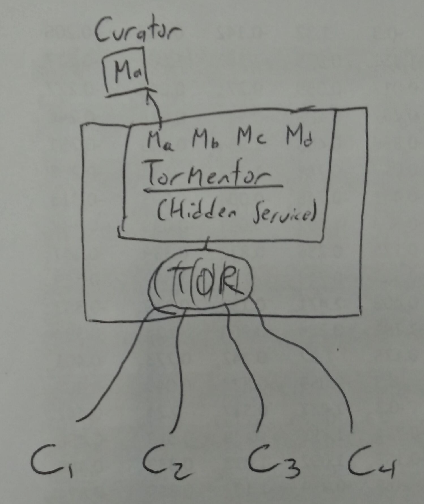 Curator
Ma
Ma Mb Mc Md
TorMentor
(Hidden Service)
TOR
C1 C2 C3 C4